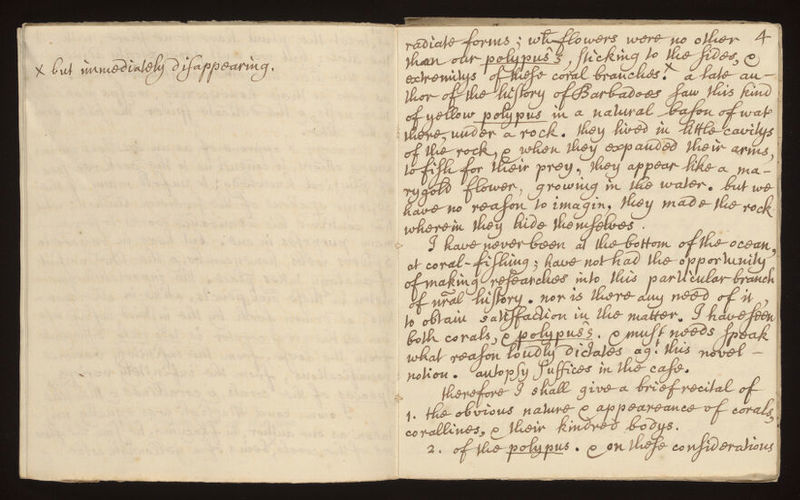 x but immediately disappearing.
4
radiate forms; wh. flowers were no other
than our polypus's, sticking to the sides, &
extremitys of these coral branches. a late au-
thor of the history of Barbadoes saw this kind
of yellow polypus in a natural bason of wat
there, under a rock. they lived in little cavitys
of the rock, & when they expanded their arms,
to fish for their prey, they appear like a ma-
rygold flower, growing in the water. but we
have no reason to imagin, they made the rock
wherein they hide themselves.
I have never been at the bottom of the ocean,
at coral-fishing; have not had the opportunity
of making researches into this particular branch
of nral history. nor is there any need of it,
to obtain satisfaction in the matter. I have seen
both corals, & polypus's. & must needs speak
what reason loudly dictates agt. this novel-
notion. autopsy suffices in the case.
therefore I shall give a brief recital of
1. the obvious nature & appeareance of corals,
corallines, & their kindred bodys.
2. of the polypus. & on these considerations